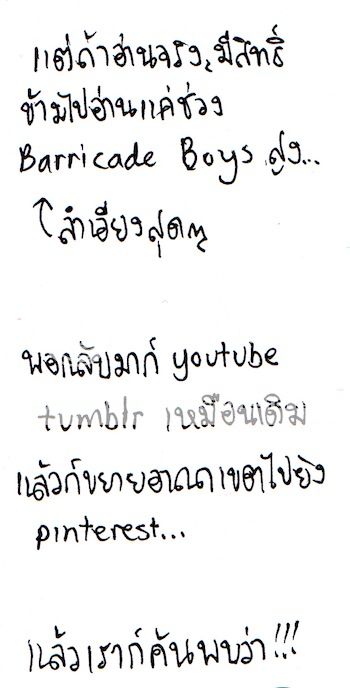 แต่ถ้าอ่านจริงๆ มีสิทธิ์
ข้ามไปอ่านแค่ช่วง
Barricade Boys สูง...
↑ลำเอียงสุดๆ
พอกลับมาก็ youtube
tumblr เหมือนเดิม
แล้วก็ขยายอาณาเขตไปยัง
pinterest...
แล้วเราก็ค้นพบว่า!!!